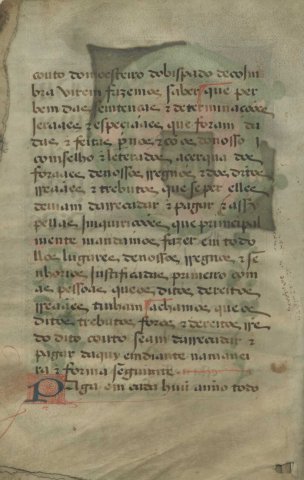 couto do moesteiro dobispado decoim
bra virem fazemos saber que per
bem das sentenças & determinações
jeraaes & especiaaes que foram da
das & feitas p nos & cõ os do nosso
comselho & leterados acerqua dos
foraaes denossos Regnos & dos ditos
reaaes & trebutos que seper elles
deuiam darrecadar & pagar & assy
pellas Inquirições que principal
mente mandamos fazer em todo
llos lugares denossos Regnos & se
nhorios justificadas primeiro com
as pessoas que os ditos dereitos
reaaes tinham achamos que os
ditos trebutos foros & dereitos rre
do dito couto seam darrecadar &
pagar daquy emdiante na manei
ra & forma seguinte
Paga em cada huũ anno todo